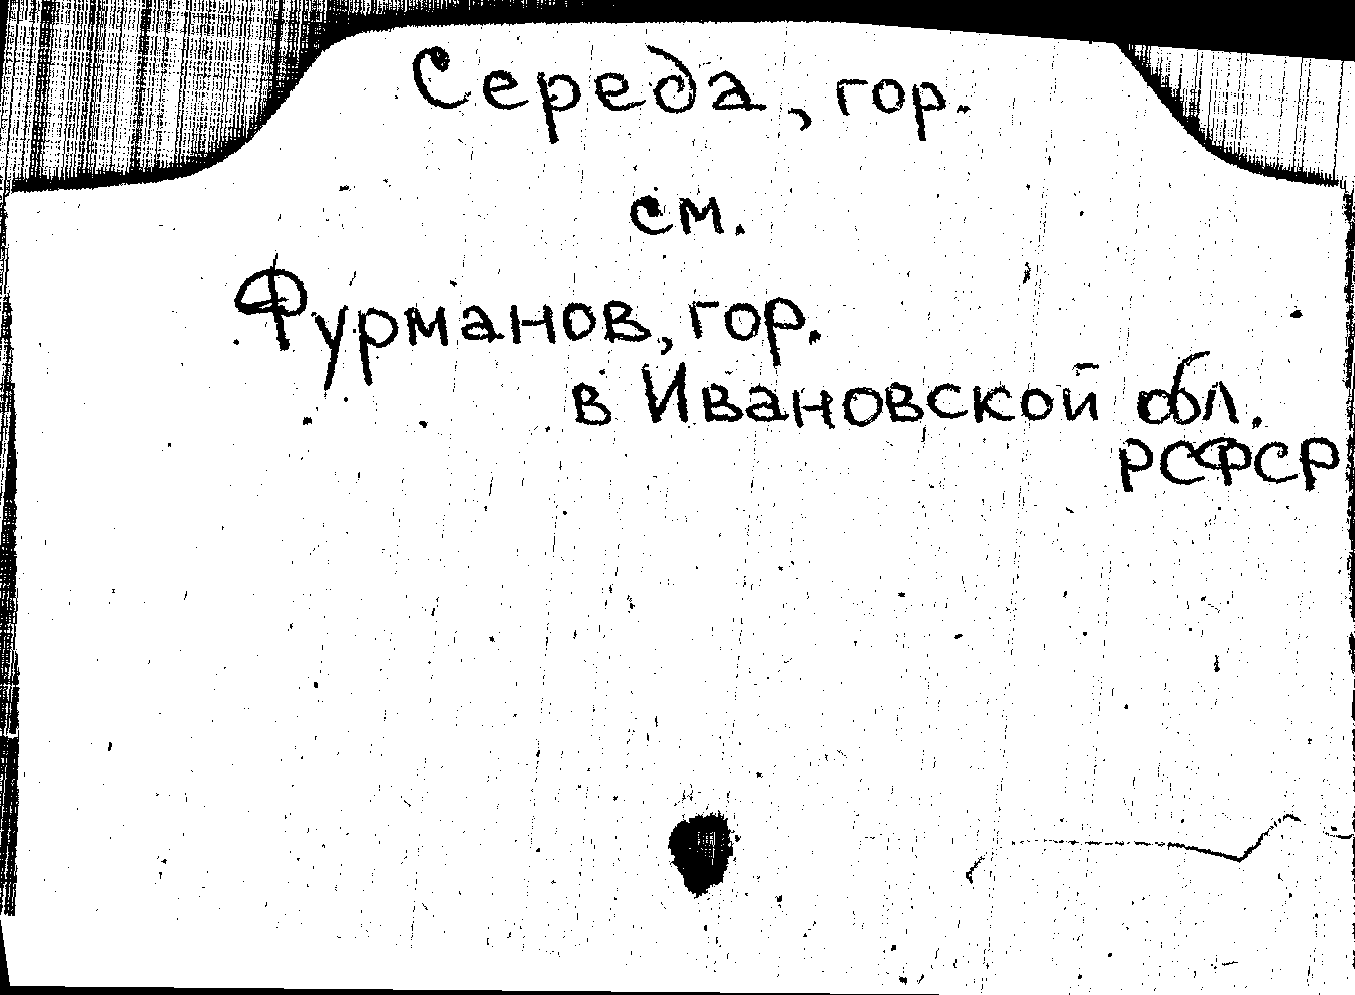 Середа, гор.
см.
Фурманов, гор.
в Ивановской обл.
РСФСР